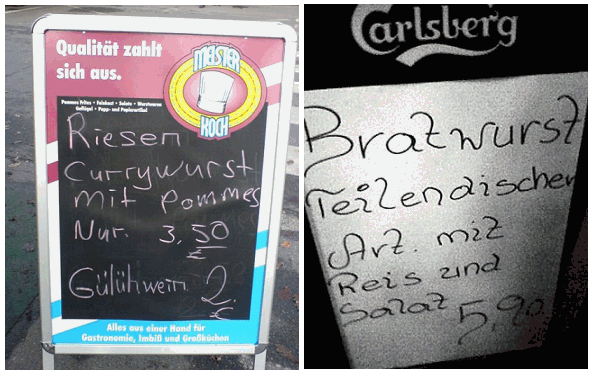 Qualität zahlt
sich aus.
MEISTER
KOCH
Pommes Frites • Feinkost • Salate • Wurstwaren
Geflügel • Papp- und Papierartikel
Riesen
Currywurst
mit Pommes
Nur. 3,50
€
Gülühwein 2.
€
Alles aus einer Hand für
Gastronomie, Imbiß und Großküchen
Carlsberg
Bratwurst
Teilendischer
Art. mit
Reis und
Salat 5,90